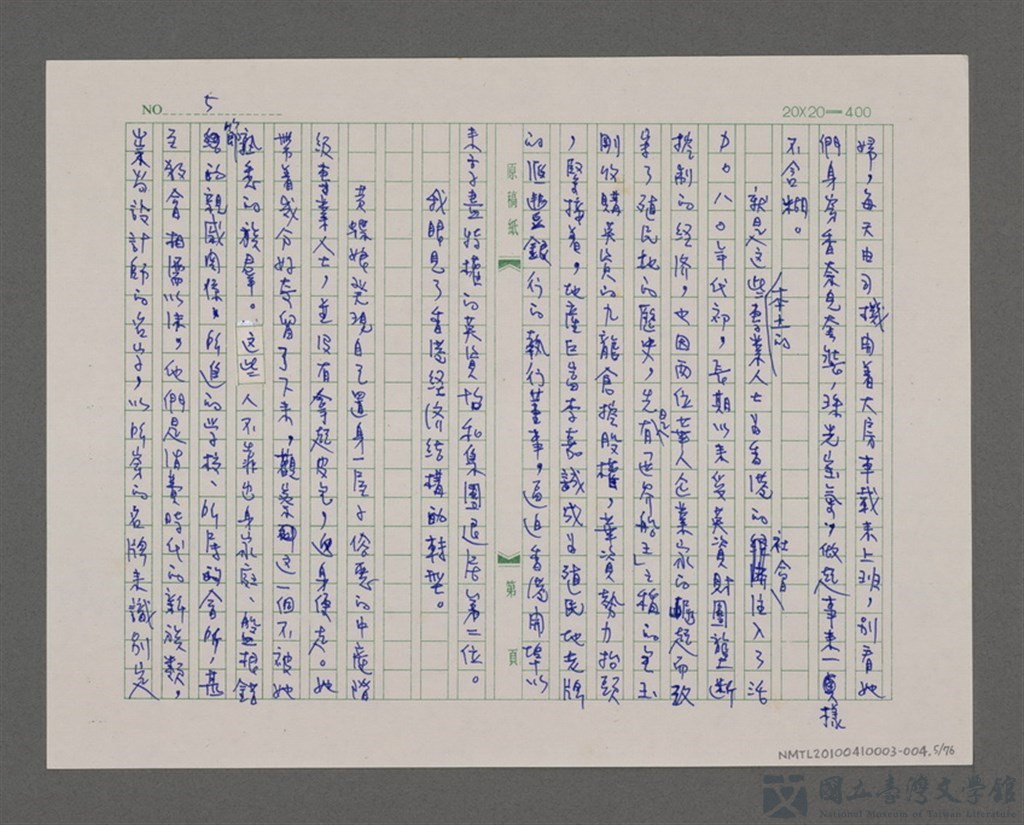 NO 5
20X20＝400
婦，每天由司機開着大房車載来上班，別看她
們身穿香奈兒套裝，珠光寶氣，做起事来一樣
不含糊。
就是這些本土的專業人士為香港的社會注入了活
力。八〇年代初，長期以来受英資財團壟断
控制的経済，也因両位華人企業家的崛起而改
寫了殖民地的歷史，先是有「世界船王」之稱的包玉
剛收購英資的九龍倉控股權，華資勢力抬頭
，緊接着，地產巨富李嘉誠成為殖民地老牌
的滙豐銀行的執行董事，逼迫香港開埠以
来享盡特權的英資怡和集團退居第二位。
我眼見了香港経済結構的轉型。
黃蝶娘発現自己置身一屋子俗惡的中產階
級專業人士，並沒有拿起皮包，返身便走。她
帶着幾分好奇留了下来，觀察這一個不被她
熟悉的族羣。這些人不靠出身家庭、盤根錯
節的親戚関係，所進的学校、所屬的會所，甚
至教會相濡以沫，他們是消費時代的新族類，
業者設計師的名字，以所穿的名牌来識別定
原稿紙
第 頁
NMTL20100410003-004, 5/76
國立臺灣文學館
National Museum of Taiwan Literature